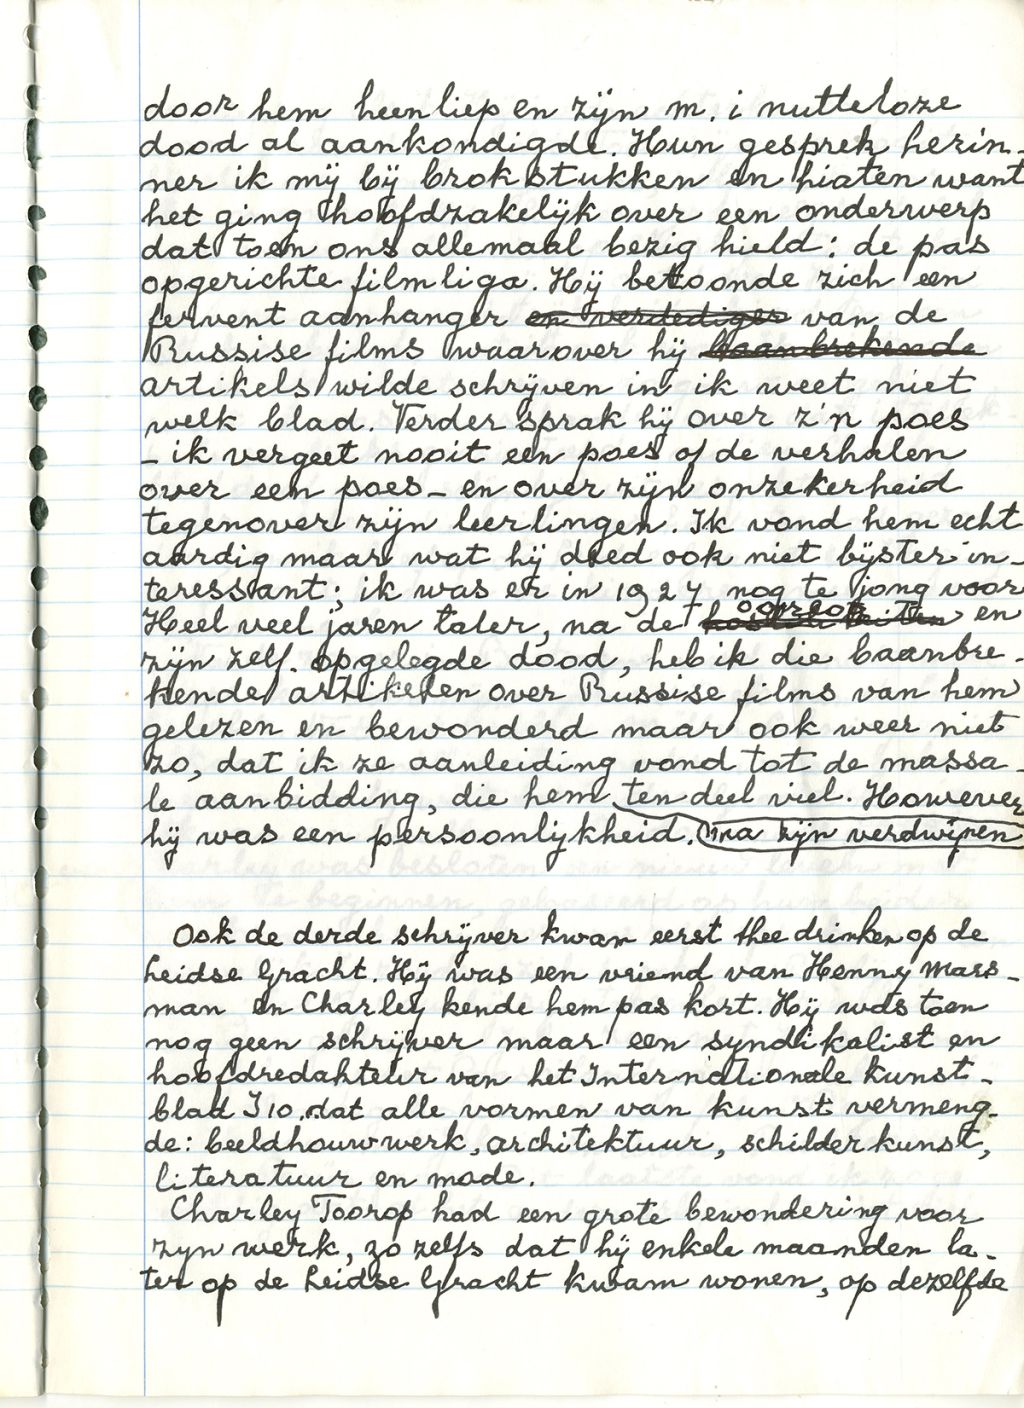 door hem heenliep en zijn m. i nutteloze
dood al aankondigde. Hun gesprek herin-
ner ik mij bij brokstukken en hiaten want
het ging hoofdzakelijk over een onderwerp
dat toen ons allemaal bezig hield: de pas
opgerichte filmliga. Hij betoonde zich een
fervent aanhanger en verdediger van de
Russise films waarover hij baanbrekende
artikels wilde schrijven in ik weet niet
welk blad. Verder sprak hij over z'n poes
- ik vergeet nooit een poes of de verhalen
over een poes - en over zijn onzekerheid
tegenover zijn leerlingen. Ik vond hem echt
aardig maar wat hij deed ook niet bijster in-
teressant; ik was er in 1927 nog te jong voor
oorlog
Heel veel jaren later, na de en
zijn zelf. opgelegde dood, heb ik die baanbre-
kende artikelen over Russise films van hem
gelezen en bewonderd maar ook weer niet
zo, dat ik ze aanleiding vond tot de massa-
le aanbidding, die hem ten deel viel. However
hij was een persoonlijkheid. na zijn verdwijnen
Ook de derde schrijver kwam eerst thee drinken op de
Leidse Gracht. Hij was een vriend van Henny Mars-
man en Charley kende hem pas kort. Hij was toen
nog geen schrijver maar een syndikalist en
hoofdredakteur van het Internationale kunst-
blad I 10. dat alle vormen van kunst vermeng-
de: beeldhouwwerk, architektuur, schilderkunst,
literatuur en mode.
Charley Toorop had een grote bewondering voor
zijn werk, zo zelfs dat hij enkele maanden la-
ter op de Leidse Gracht kwam wonen, op dezelfde